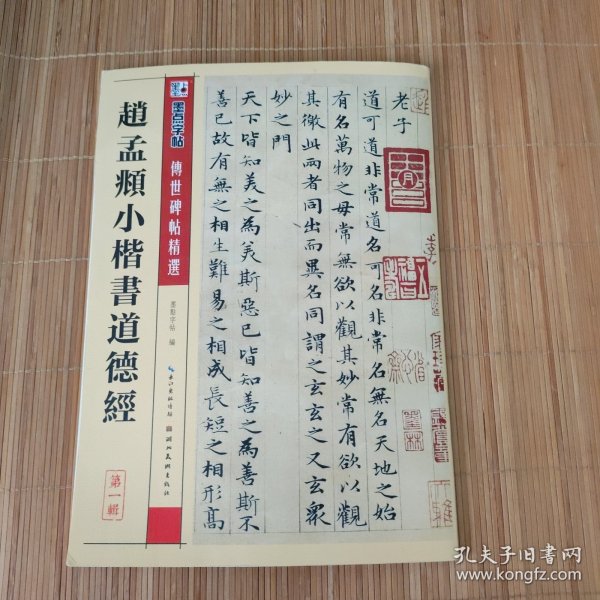 趙孟頫小楷書道德經
第一輯
墨点字帖
傳世碑帖精選
墨點字帖 編
長江出版傳媒
湖北美術出版社
老子
道可道非常道名可名非常名無名天地之始
有名萬物之母常無欲以觀其妙常有欲以觀
其徼此兩者同出而異名同謂之玄玄之又玄衆
妙之門
天下皆知美之為美斯惡已皆知善之為善斯不
善已故有無之相生難易之相成長短之相形高
孔夫子旧書网
www.kongfz.com